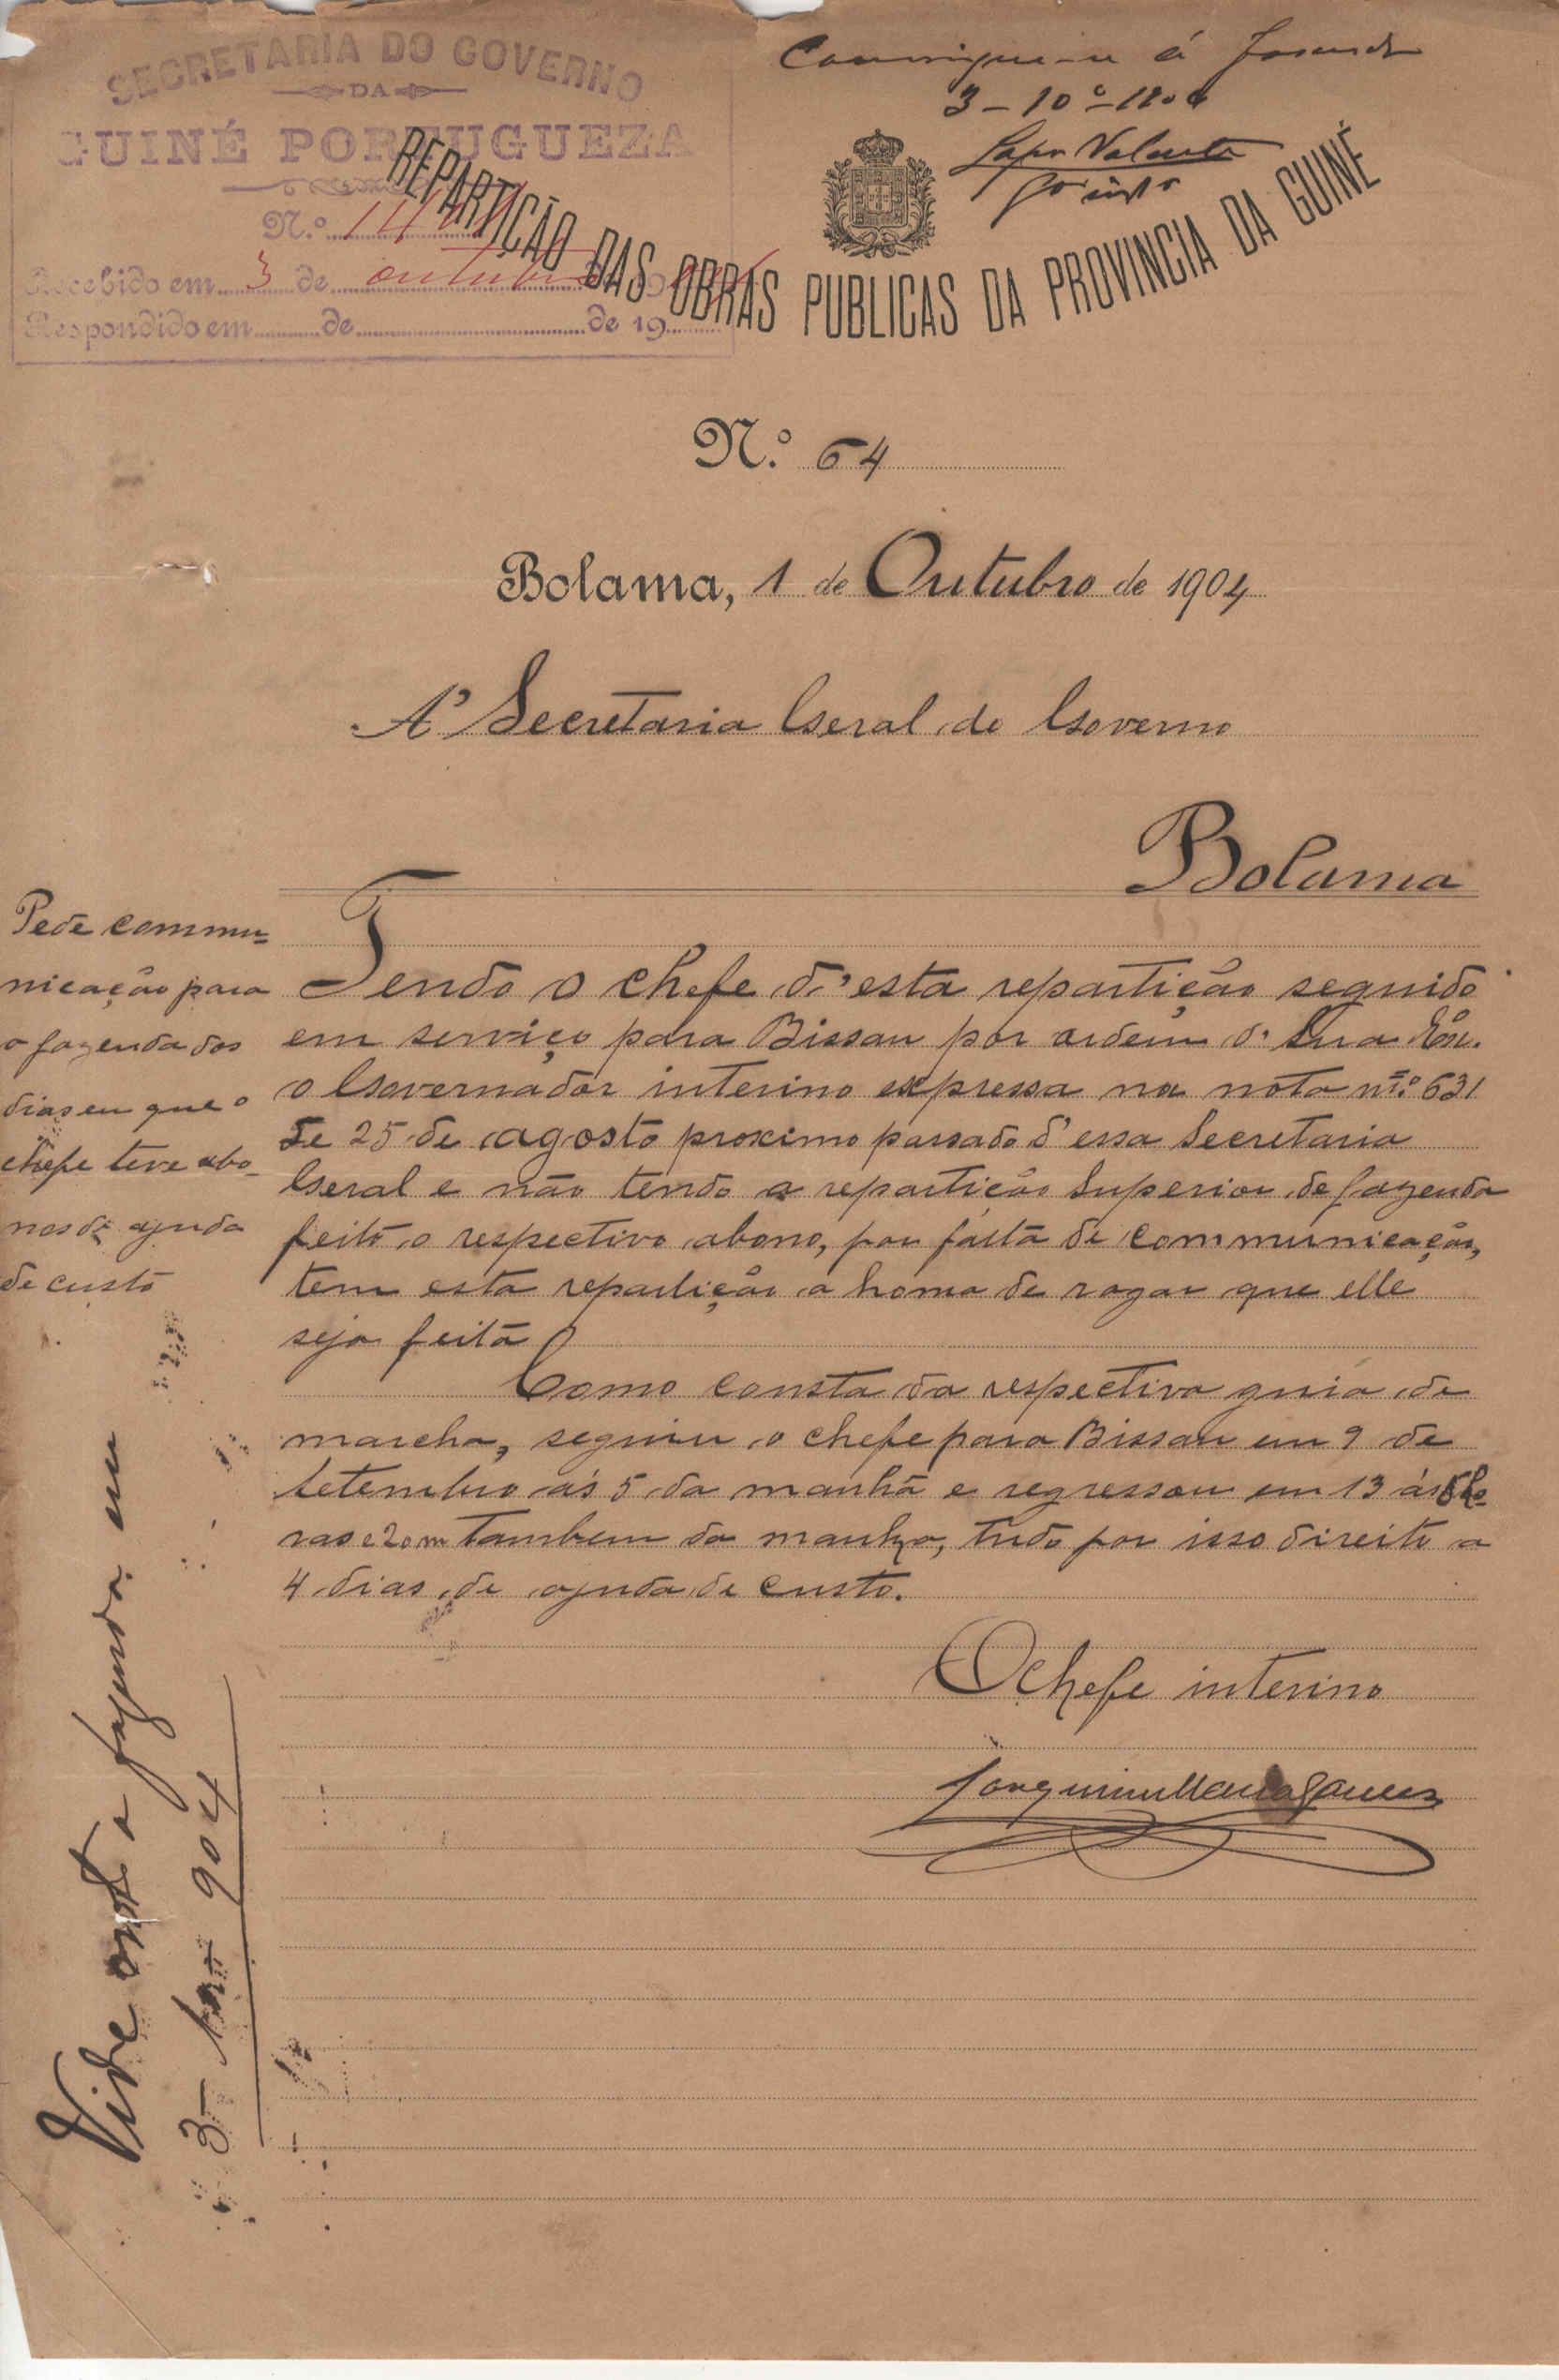 SECRETARIA DO GOVERNO
DA
GUINÉ PORTUGUEZA
N.º
Recebido em 3 de outubro
Respondido em de de 19
Communique-se á Fazenda
3-10º-1904
Valente
REPARTIÇÃO DAS OBRAS PUBLICAS DA PROVINCIA DA GUINÉ
N.º 64
Bolama, 1 de Outubro de 1904
A' Secretaria Geral do Governo
Bolama
Pede commu=
nicação para
a fazenda dos
dias em que o
chefe teve abo-
nos de ajuda
de custo
Tendo o chefe d'esta repartição seguido
em serviço para Bissau por ordem d' Sua Exª.
o Governador interino expressa na nota nº 631
de 25 de agosto proximo passado d'essa Secretaria
Geral e não tendo a repartição Superior de fazenda
feito o respectivo abono, por falta de communicação,
tem esta repartição a honra de rogar que elle
seja feito
Como consta da respectiva guia de
marcha, seguiu o chefe para Bissau em 9 de
Setembro ás 5 da manhã e regressou em 13 ás 5 ho
ras e 20 m tambem da manhã, tndo por isso direito a
4 dias de ajuda de custo.
O Chefe interino
Vide a fazenda em
3- 904